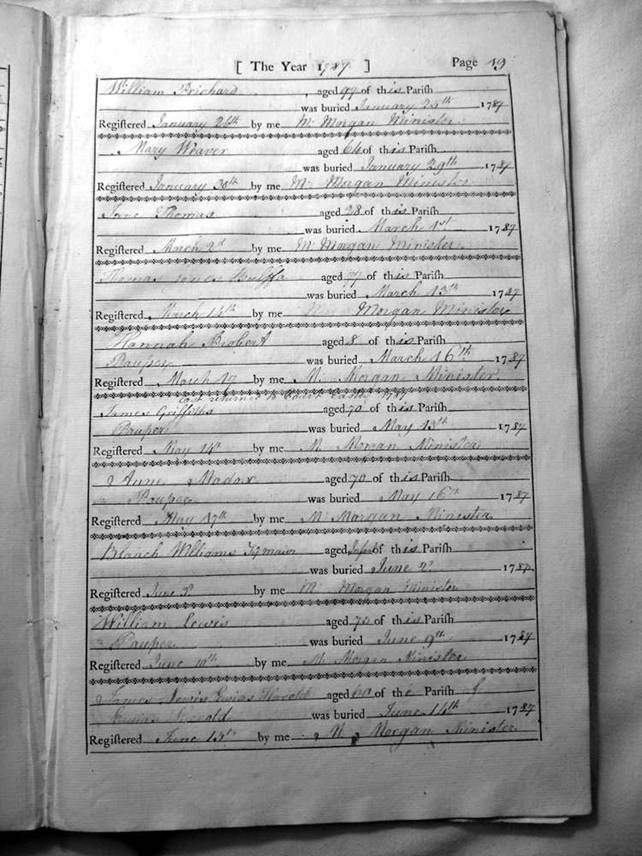 [ The Year 1787 ] Page 19
William Prichard aged 97 of this Parish
was buried January 23th 1787
Registered January 24th by me M. Morgan Minister
Mary Weaver aged 64 of this Parish
was buried January 29th 1787
Registered January 30th by me M. Morgan Minister
Jane Thomas aged 28 of this Parish
was buried March 1st 1787
Registered March 2d by me M. Morgan Minister
Thomas Jones aged 77 of this Parish
was buried March 13th 1787
Registered March 14th by me M Morgan Minister
Hannah aged 8 of this Parish
Pauper was buried March 16th 1787
Registered March 17 by me M. Morgan Minister
1787
James Griffiths aged 70 of this Parish
Pauper was buried May 13th 1787
Registered May 14th by me M. Morgan Minister
Anne Maddox aged 70 of this Parish
Pauper was buried May 16th 1787
Registered May 17th by me M. Morgan Minister
Blanch Williams aged of this Parish
was buried June 2d 1787
Registered June by me M. Morgan Minister
William Lewis aged 70 of this Parish
Pauper was buried June 9th 1787
Registered June 10th by me M. Morgan Minister
James Lewis Ewias Harold aged 60 of the Parish of
Ewias Harold was buried June 14th 1787
Registered June 15th by me M. Morgan Minister